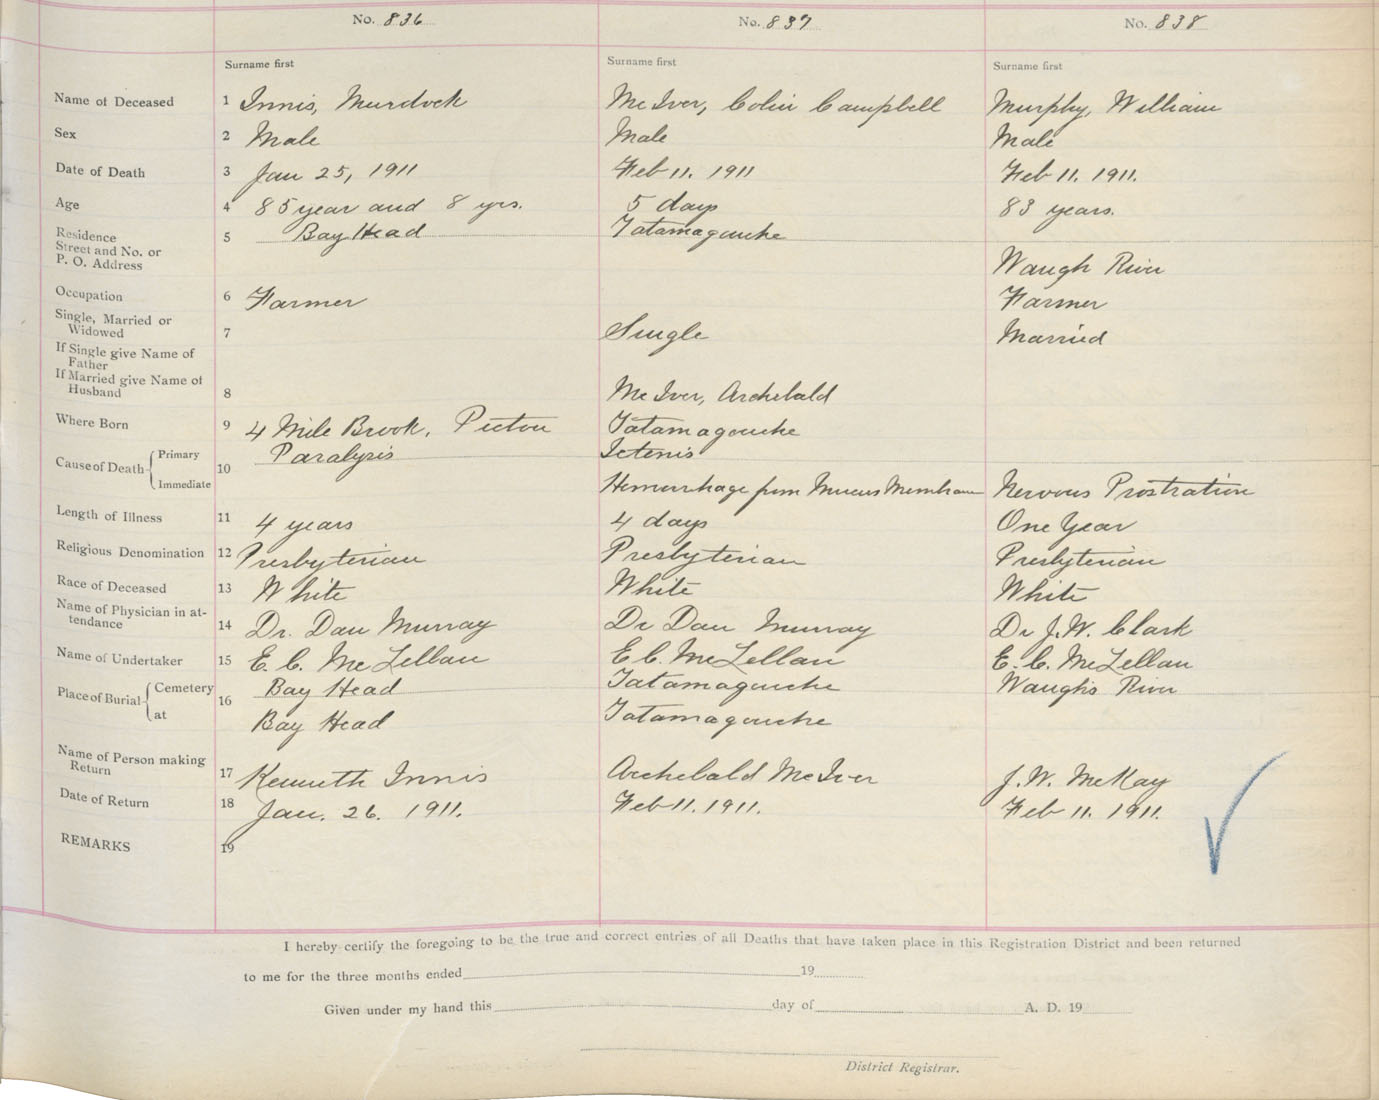 No. 836 No. 837 No. 838
Surname first Surname first Surname first
Name of Deceased 1 Innis, Murdock Mc Iver, Colin Campbell Murphy, William
Sex 2 Male Male Male
Date of Death 3 Jan 25, 1911 Feb 11. 1911 Feb 11. 1911.
Age 4 85 year and 8 yrs. 5 days 83 years.
Residence
Street and No. or
P. O. Address 5 Bay Head Tatamagouche Waugh River
Occupation 6 Farmer Farmer
Single, Married or
Widowed 7 Single Married
If Single give Name of
Father
If Married give Name of
Husband 8 Mc Iver, Archebald
Where Born 9 4 Mile Brook, Pictou Tatamagouche
Cause of Death Primary 10 Paralysis Icterus
Immediate Hemorrhage from Mucus Membrane Nervous Prostration
Length of Illness 11 4 years 4 days One Year
Religious Denomination 12 Presbyterian Presbyterian Presbyterian
Race of Deceased 13 White White White
Name of Physician in at-
tendance 14 Dr. Dan Murray Dr Dan Murray Dr J. W. Clark
Name of Undertaker 15 E. C. McLellan E C. McLellan E. C. McLellan
Place of Burial Cemetery 16 Bay Head Tatamagouche Waughs River
at Bay Head Tatamagouche
Name of Person making
Return 17 Kenneth Innis Archebald McIver J. W. McKay
Date of Return 18 Jan. 26. 1911. Feb 11. 1911. Feb 11. 1911.
REMARKS 19
I hereby certify the foregoing to be the true and correct entries of all Deaths that have taken place in this Registration District and been returned
to me for the three months ended 19
Given under my hand this day of A. D. 19
District Registrar.